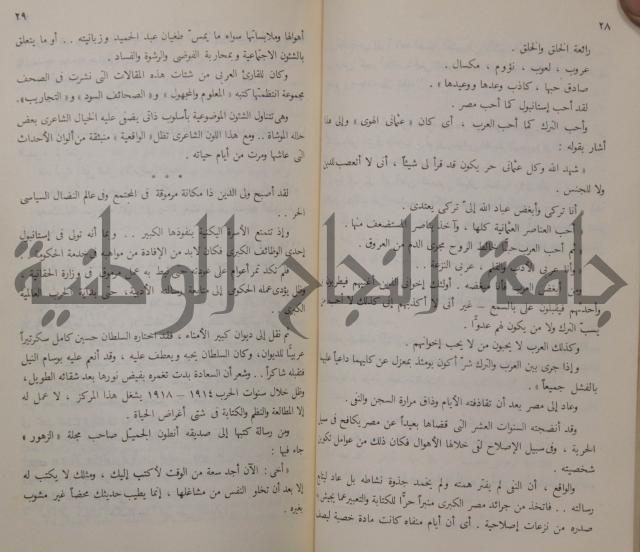 ٢٨
رائعة الخلق والخلق .
عروب ، لعوب ، نؤوم ، مكسال .
صادق حبها ، كاذب وعدها ووعيدها » .
لقد أحب إستانبول كما أحب مصر .
وأحب الترك كما أحب العرب ، أى كان « عثمانى الهوى » وإلى هذا
أشار بقوله :
« شهد الله وكل عثمانى حر يكون قد قرأ لى شيئاً ، أنى لا أتعصب للدين
ولا للجنس .
أنا تركى وأبغض عباد الله إلىّ تركى يعتدى .
أحب العناصر العثمانية كلها ، وآخذ بناصر المستضعف منها .
ثم أحب العرب حباً يخالط الروح مجرى الدم من العروق .
وأنا عربى الأدب والقلم ، عربى النزعة .
ومن أبغض العرب فأنا مبغضه . أولئك إخوانى الذين
وأحدثهم فيقبلون على بالسمع – غير أنى لا أكذبهم إنى كذلك لا أحب من
يسب الترك ولا من يكون لهم عدوًّا .
وكذلك العرب لا يحبون من لا يحب إخوانهم .
وإذا جرى بين العرب والترك شر أكون يومئذ بمعزل عن كليهما داعياً عليهما
بالفشل جميعاً » .
وعاد إلى مصر بعد أن تقاذفته الأيام وذاق مرارة السجن والنفى .
وقد أنضجته السنوات العشر التى قضاها بعيداً عن مصر يكافح فى سبيل
الحرية ، وفى سبيل الإصلاح لقى خلالها الأهوال فكان ذلك من عوامل تكوين
شخصيته .
والواقع ، أن النفى لم يفتر همته ولم يخمد جذوة نشاطه بل عاد ليتابع
رسالته . . فاتخذ من جرائد مصر الكبرى منبراً حرًّا للكتابة والتعبير عما يجيش فى
صدره من نزعات إصلاحية . أى أن أيام منفاه كانت مادة خصبة ليصف
٢٩
أهوالها وملابساتها سواء ما يمس طغيان عبد الحميد وزبانيته . . أو ما يتعلق
بالشئون الاجتماعية وبمحاربة الفوضى والرشوة والفساد .
وكان للقارئ العربى من شتات هذه المقالات التى نشرت فى الصحف
مجموعة انتظمتها كتبه « المعلوم والمجهول » و « الصحائف السود » و « التجاريب » .
وهى تتناول الشئون الموضوعية بأسلوب ذاتى يضفى عليه الخيال الشاعرى بعض
حلله الموشاة . . ومع هذا اللون الشاعرى تظل « الواقعية » منبثقة من ألوان الأحداث
التى عاشها ومرت من أيام حياته .
* * *
لقد أصبح ولى الدين ذا مكانة مرموقة فى المجتمع وفى عالم النضال السياسى
الحر . .
وإذ تتمتع الأسرة اليكنية بنفوذها الكبير . . وبما أنه تولى فى إستانبول
إحدى الوظائف الكبرى فكان لابد من الإفادة من مواهبه فى خدمة الحكومة .
فلم تكد تمر أعوام على عودته حتى نيط به عمل مرموق فى وزارة الحقانية .
وظل يؤدى عمله الحكومى إلى متابعة رسالته الأدبية ، حتى بداية الحرب العالمية
الكبرى .
ثم نقل إلى ديوان كبير الأمناء ، فقد اختاره السلطان حسين كامل سكرتيراً
عربيًّا للديوان ، وكان السلطان يحبه ويعطف عليه ، وقد أنعم عليه بوسام النيل
فتقبله شاكراً . . وشعر أن السعادة بدت تغمره بفيض نورها بعد شقائه الطويل ،
وظل خلال سنوات الحرب ١٩١٤ – ١٩١٨ يشغل هذا المركز ، لا عمل له
إلا المطالعة والنظم والكتابة فى شتى أغراض الحياة .
ومن رسالة كتبها إلى صديقه أنطون الجميّل صاحب مجلة « الزهور »
جاء فيها :
« أخى : الآن أجد سعة من الوقت لأكتب إليك ، ومثلك لا يكتب له
إلا بعد أن تخلو النفس من مشاغلها ، إنما يطيب حديثك محضاً غير مشوب
بغيره .
جامعة النجاح الوطنية